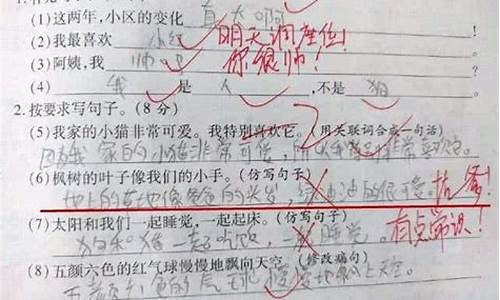 (1)这两年,小区的变化真大啊
(2)我最喜欢 小红 明天调座位!
(3)阿姨,我帅吧 你很帅!
(4) 我 是 人 ,不是 狗
2.按要求写句子。(8分)
(5)我家的小猫非常可爱。我特别喜欢它。(用关联词合成一句话)
因为我家的小猫非常可爱,所以我特别非常喜欢它。
(6)枫树的叶子像我们的小手。(仿写句子)
地上的草地像爸爸的头发,绿油油的很可爱。抗争!
(7)太阳和我们一起睡觉,一起起床。(仿写句子)
狗和猪一起吃饭,一起睡觉。 有点常识!
(8)五颜六色的红气球慢慢地飘向天空。(修改病句)
五颜六色的气球慢慢地飘上天空。